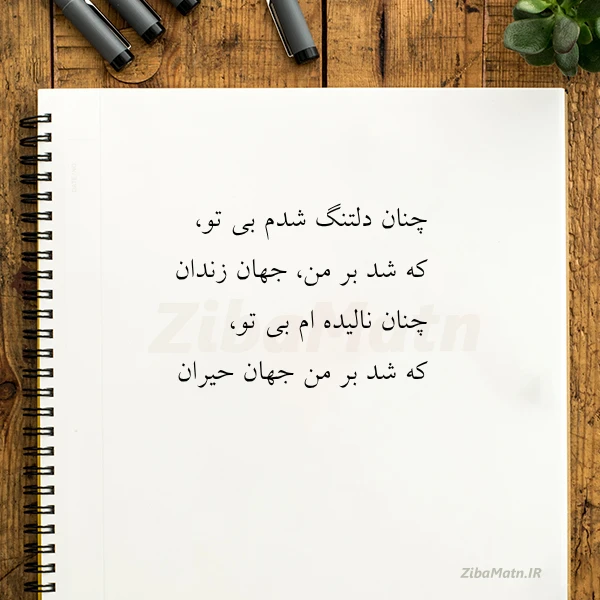 چنان دلتنگ شدم بی تو،
که شد بر من، جهان زندان
چنان نالیده ام بی تو،
که شد بر من جهان حیران
ZibaMatn
ZibaMatn.IR